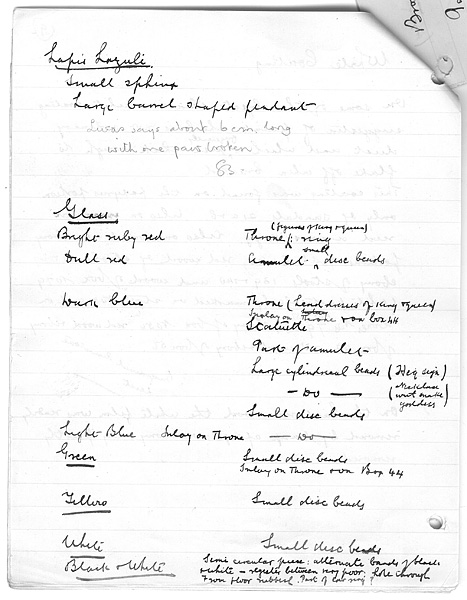 Bra
9
Lapis Lazuli.
Small sphinx
Large barrel shaped pendant
Lucas says about 6 cm. long
with one pair broken
83
Glass
(figures of king & queen)
Bright ruby red Throne; ring
small
Dull red Amulet, disc beads
Dark blue Throne (head dresses of King & Queen)
Inlay on Throne & on Box 44
Statuette
Part of amulet
Large cylindrical beads (Heq sign)
— Do — (necklace
goddess)
Small disc beads
Light Blue Inlay on Throne — Do —
Green Small disc beads
Inlay on Throne & on Box 44
Yellow Small disc beads
White Small disc beads
Black & White Semi circular piece: alternate bands of black
& white — register between very poor. Hole through
From floor rubbish. Part of ear ring?